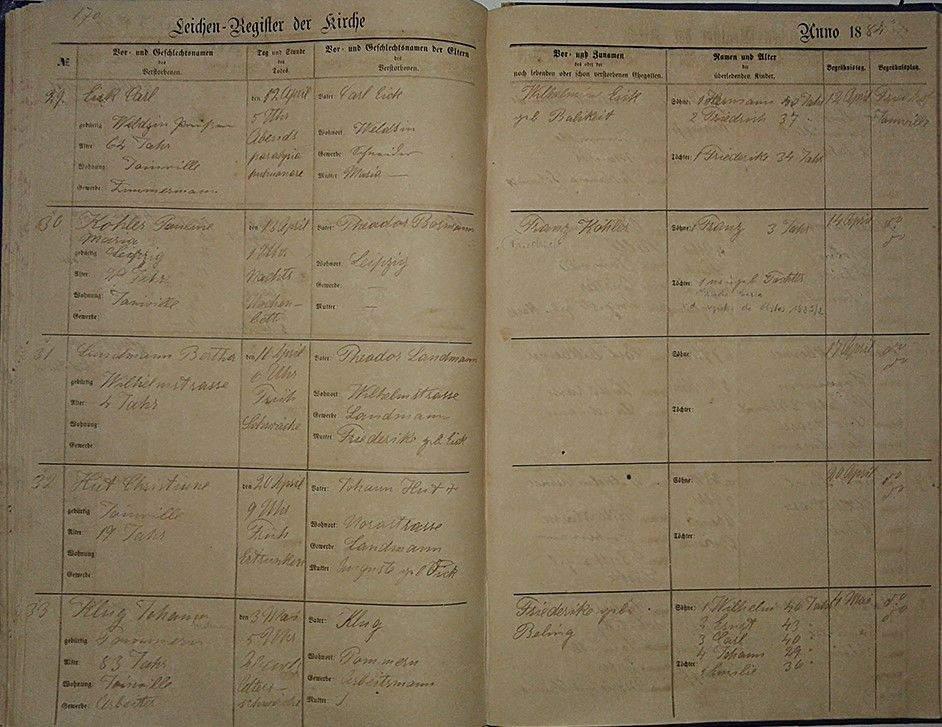 170
Leichen-Register der Kirche
Anno 1884
№
Vor- und Geschlechtsnamen
des
Verstorbenen.
Tag und Stunde
des
Todes.
Vor- und Geschlechtsnamen der Eltern
des
Verstorbenen.
Vor- und Zunamen
des oder der
noch lebenden oder schon verstorbenen Ehegatten.
Namen und Alter
der
überlebenden Kinder.
Begräbnistag.
Begräbnisplatz.
29.
Eick Carl
gebürtig
Alter: 64 Jahr
Wohnung: Joinville
Gewerbe: Zimmermann
den 12 April
5 Uhr
Abends
Vater: Carl Eick
Wohnort:
Gewerbe: Schneider
Mutter: Maria —
Wilhelmine Eick
geb
Söhne: 1 Hermann 40 Jahr
2 Friedrich 37 "
Töchter: 1 Friederike 34 Jahr
12 April
Joinville
30
Köhler Pauline
Maria
gebürtig Leipzig
Alter: Jahr
Wohnung: Joinville
Gewerbe:
den 13 April
1 Uhr
Nachts
Wochen-
bett
Vater: Theodor
Wohnort: Leipzig
Gewerbe: —
Mutter —
Franz Köhler
Söhne: 1 Franz 3 Jahr
Töchter: 1
14 April
do
31
Landmann Bertha
gebürtig Wilhelmstrasse
Alter: 4 Jahr
Wohnung:
Gewerbe:
den 16 April
6 Uhr
Früh
Schwäche
Vater: Theodor Landmann
Wohnort: Wilhelmstrasse
Gewerbe Landmann
Mutter Friederike geb. Eick
Söhne:
Töchter:
17 April
do
32
Hut Christine
gebürtig Joinville
Alter: 19 Jahr
Wohnung:
Gewerbe:
den 20 April
9 Uhr
Früh
Ertrunken
Vater: Johann Hut +
Wohnort: Nordstrasse
Gewerbe: Landmann
Mutter: Auguste geb Fick
Söhne:
Töchter:
20 April
do
33
Klug Johann
gebürtig Pommern
Alter: 83 Jahr
Wohnung: Joinville
Gewerbe: Arbeiter
den 3 Mai
5 Uhr
Abend
Alters-
schwäche
Vater: Klug
Wohnort: Pommern
Gewerbe: Arbeitsmann
Mutter
Friederike geb.
Beling
Söhne: 1 Wilhelm 46 Jahr
2 Ernst 43 "
3 Carl 40 "
4 Johann 29 "
Töchter: 1 Emilie 36 "
4 Mai
do